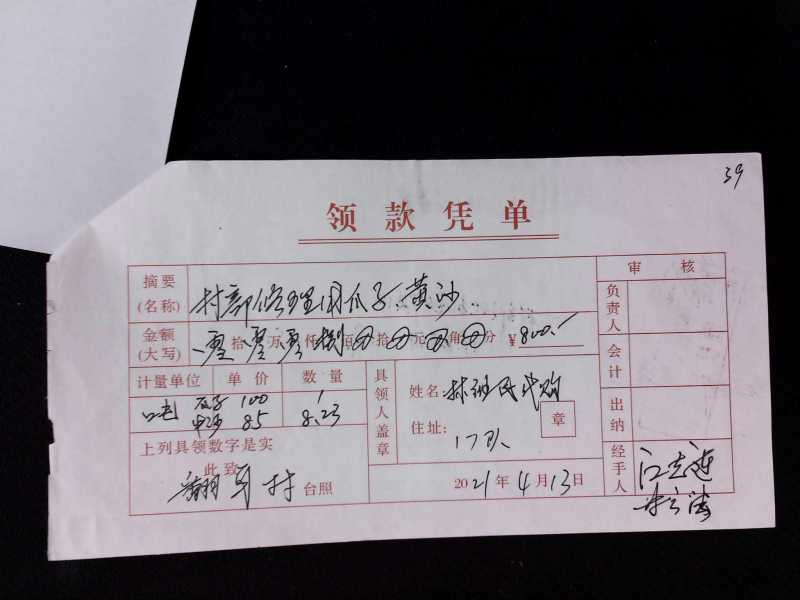 39
领款凭单
摘要(名称) 村部修理用瓜子 黄沙
审核
金额(大写) 零拾零万零仟捌百拾元角分 ¥800.-
负责人
计量单位 单价 数量
瓜子 100 1
中沙 85 8.23
会计
出纳
经手人
具领人盖章
姓名:
住址: 17队
章
上列具领数字是实
此致
村台照
2021年4月13日